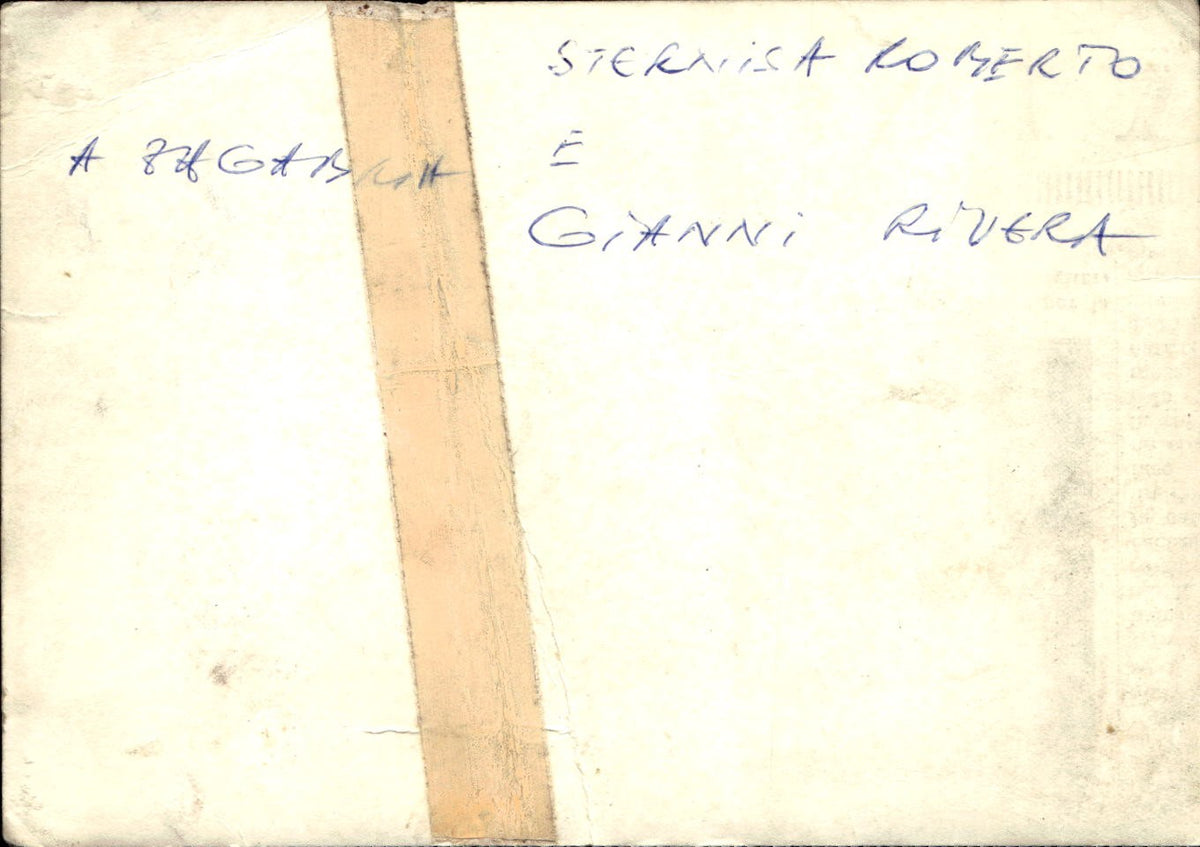 STERNISA ROBERTO
A ZAGABRIA E
GIANNI RIVERA